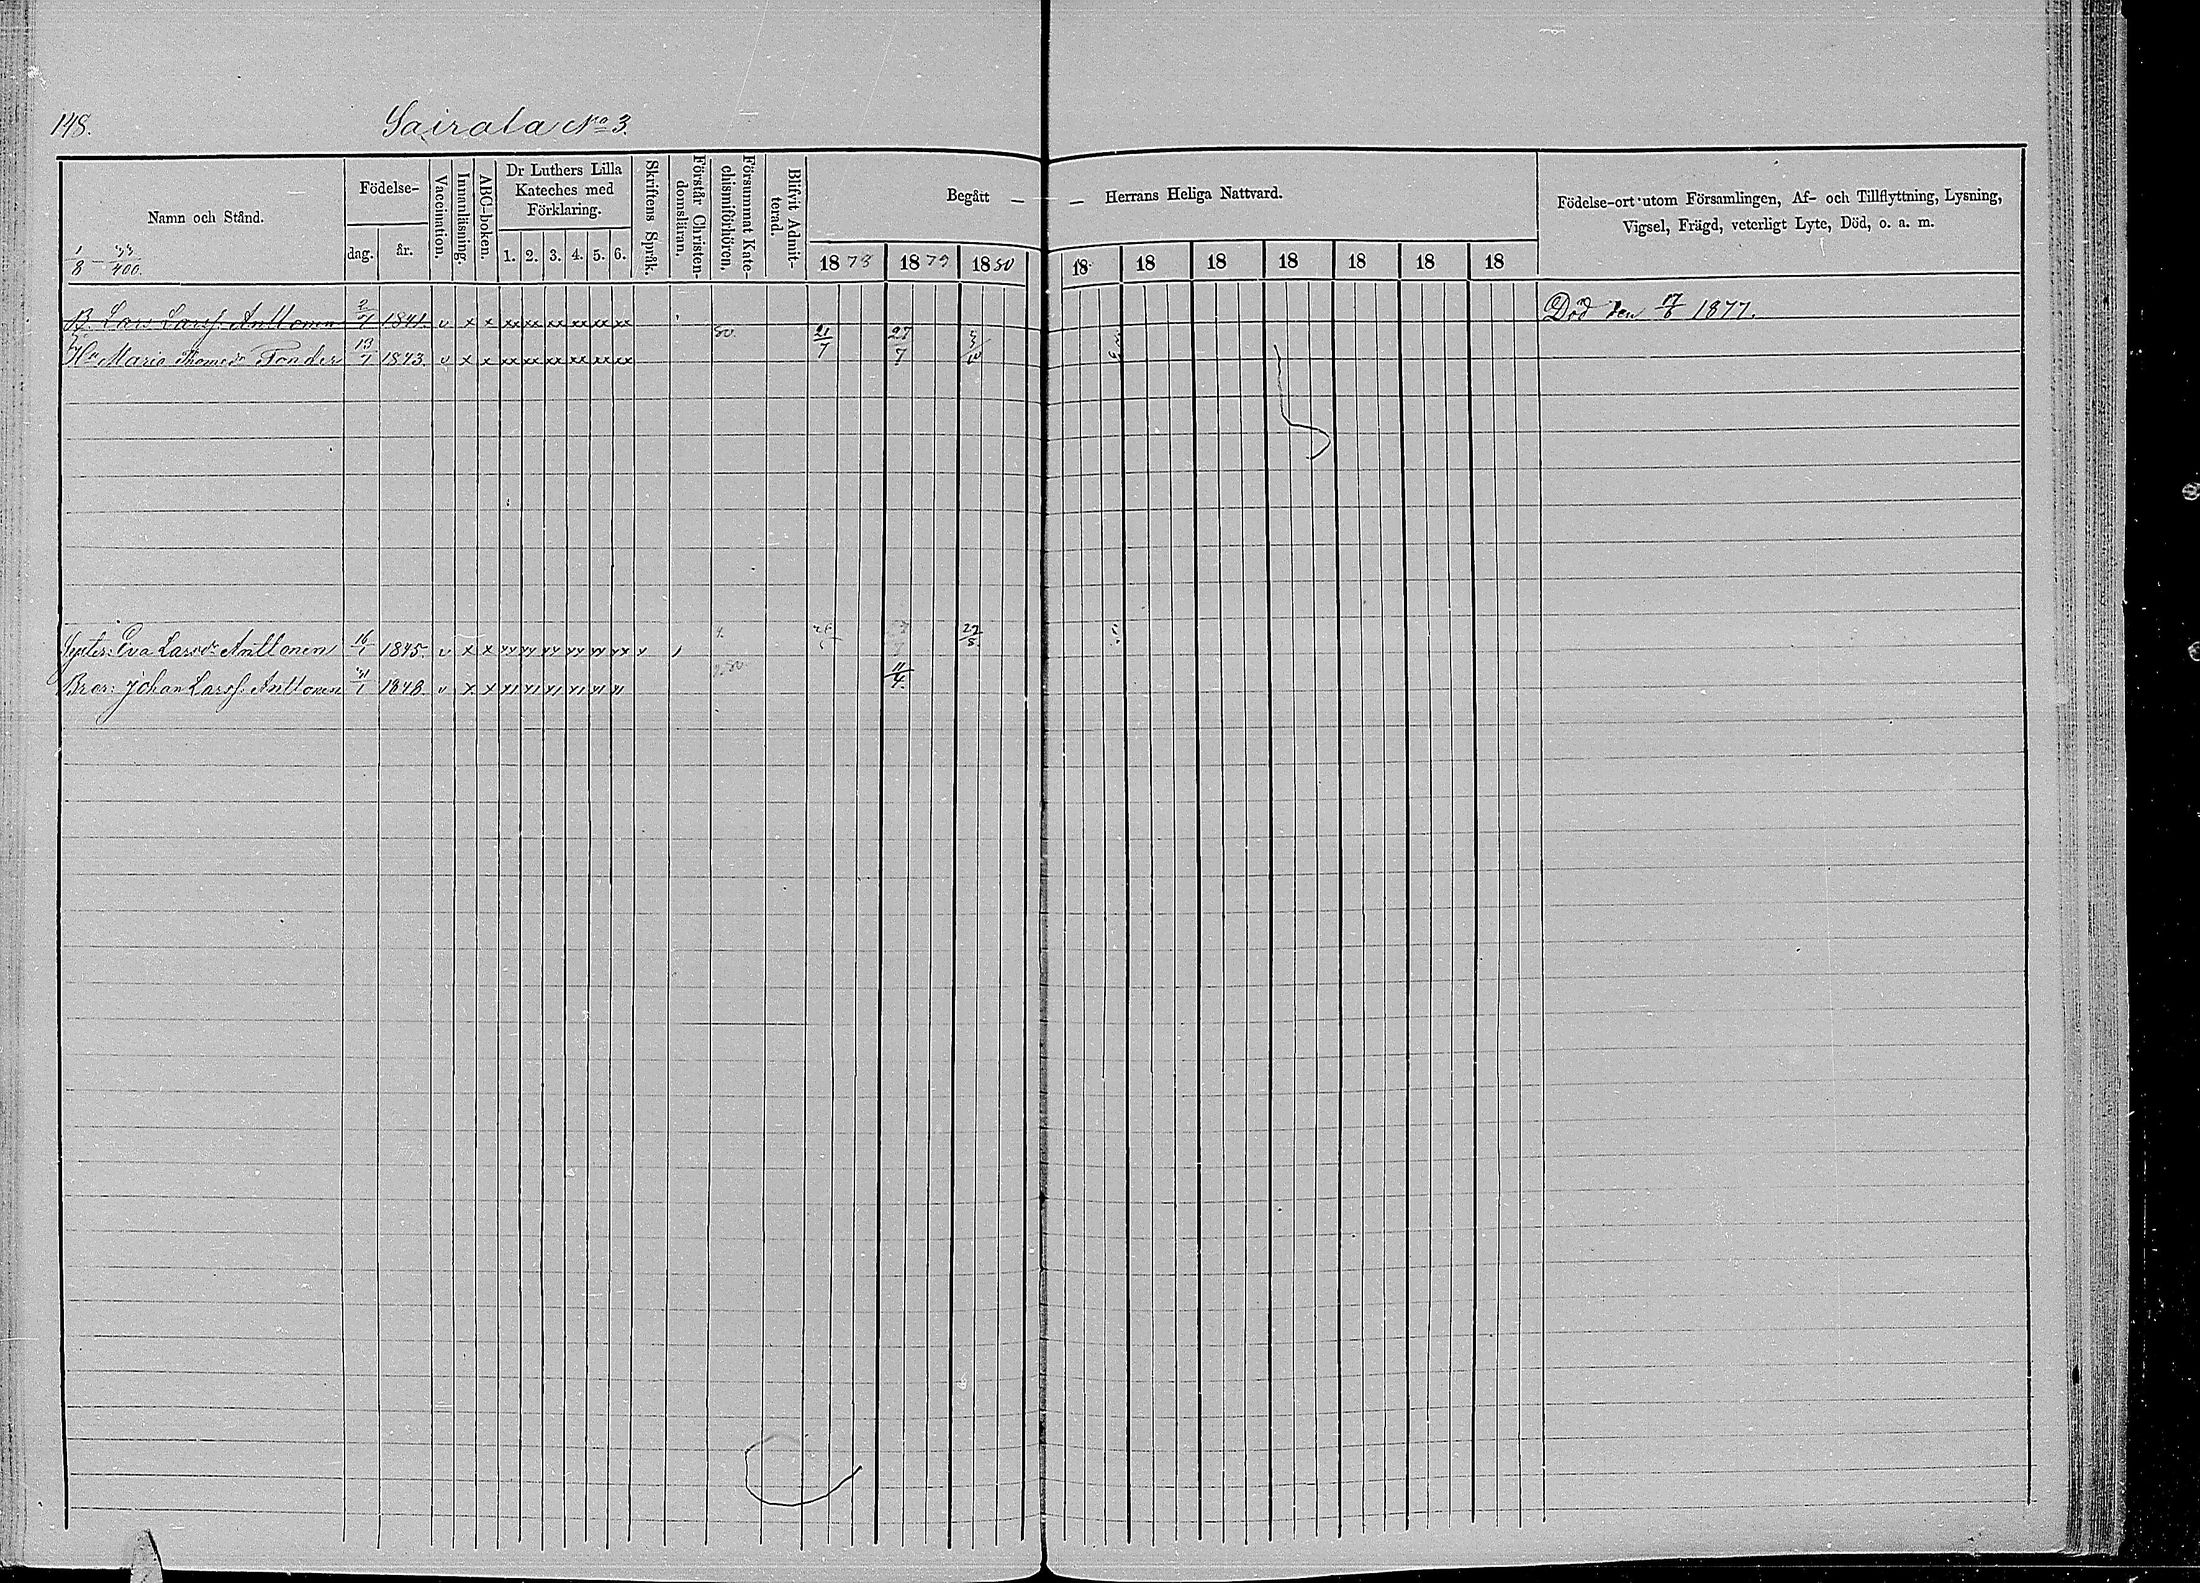 148. Sairala No 3.
Namn och Stånd.
1/8 — 33/400.
Födelse-
dag. år.
Vaccination.
Innanläsning.
ABC-boken.
Dr Luthers Lilla
Kateches med
Förklaring.
1. 2. 3. 4. 5. 6.
Skriftens Språk.
Förstår Christen-
domsläran.
Försummat Kate-
chismiförhören.
Blifvit Admit-
terad.
Begått — — Herrans Heliga Nattvard.
1878 1879 1880 18 18 18 18 18 18 18
Födelse-ort utom Församlingen, Af- och Tillflyttning, Lysning,
Vigsel, Frägd, veterligt Lyte, Död, o. a. m.
B. Lars Larsf. Anttonen 1841. v x x xx xx xx xx xx xx Död den 17/6 1877.
Ha Maria Thomasdr Tonder 13/1 1843. v x x xx xx xx xx xx xx 80. 21/7 27/7
Syster: Eva Larsdr Anttonen 16/1 1845. v x x 27/5.
Bror: Johan Larsf. Anttonen 1848. v x x 11/4.